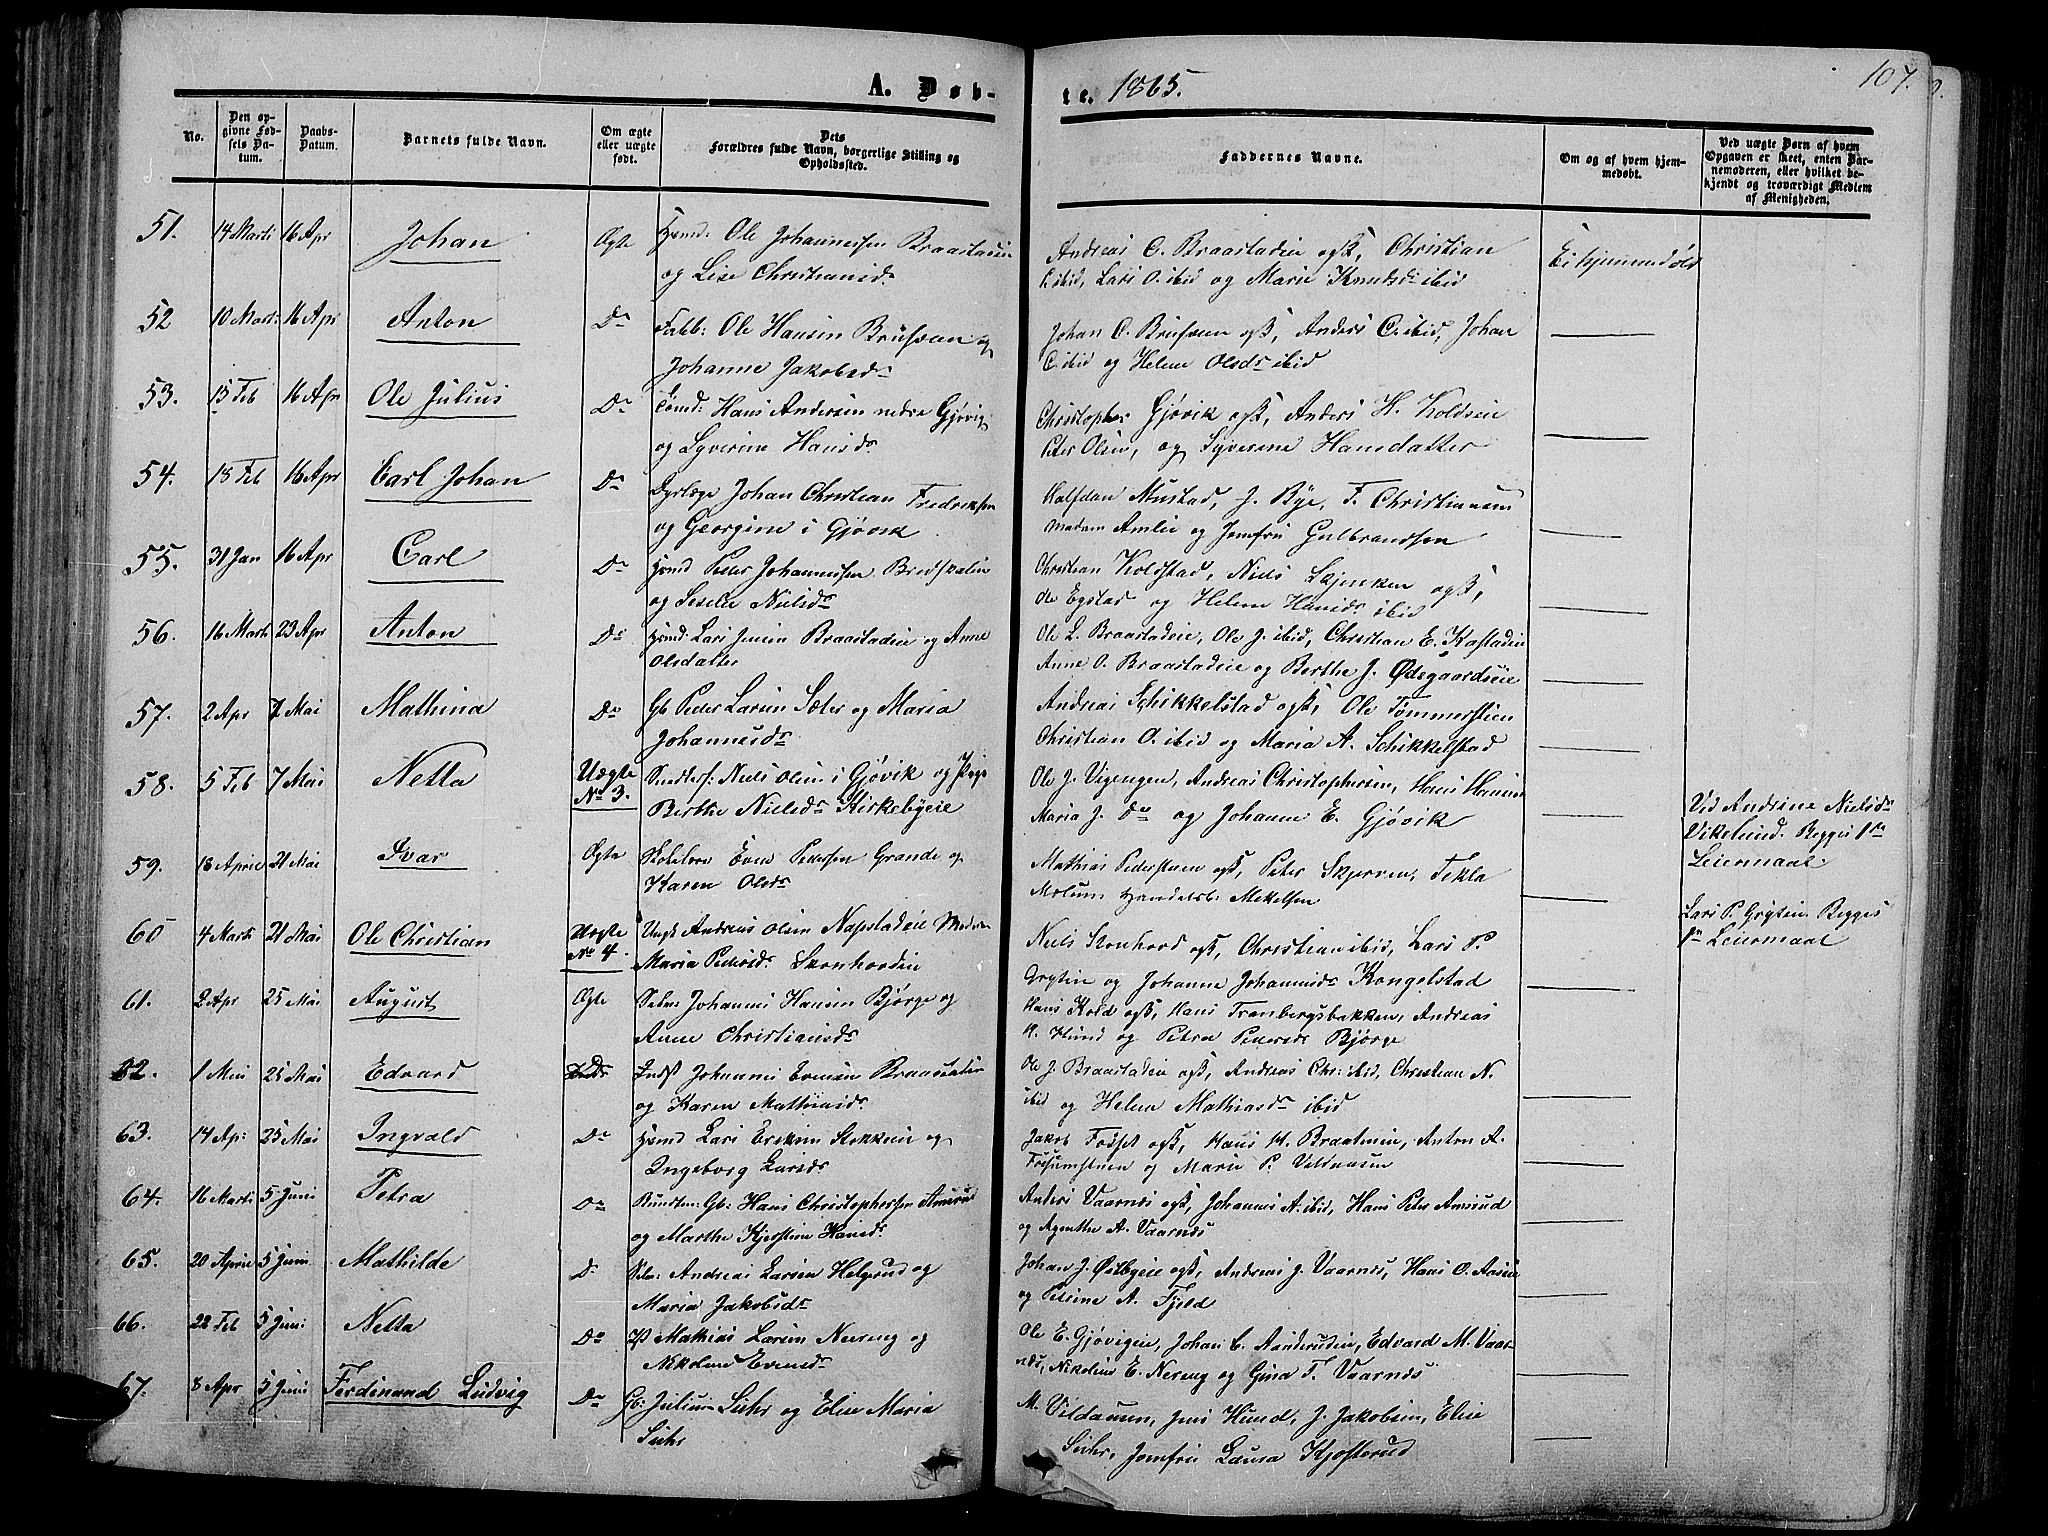 A. Døb-
te. 1865.
107.
No.
Den op-
givne Fød-
sels Da-
tum.
Daabs-
Datum.
Barnets fulde Navn.
Om ægte
eller uægte
født.
Dets
Forældres fulde Navn, borgerlige Stilling og
Opholdssted.
Faddernes Navne.
Om og af hvem hjem-
medøbt.
Ved uægte Børn af hvem
Opgaven er skeet, enten Bar-
nemoderen, eller hvilket be-
kjendt og troværdigt Medlem
af Menigheden.
51. 14 Marts 16 Apr Johan Ægte Hsmd: Ole Johannessen Braastadeie
og Lise Christiansdr
Andreas O. Braastadeie ogsk, Christian
ibid, Lars O. ibid og Marie Knudsdr ibid
Ei hjemmedøbt
52 10 Marts 16 Apr Anton Do Fabb: Ole Hansen Brusveen og
Johanne Jakobsdr
Johan O. Brusveen ogsk, Anders C. ibid, Johan
C. ibid og Helene Olsdr ibid
53. 15 Feb 16 Apr Ole Julius Do Tømd: Hans Andersen nedre Gjøvig
og Syverine Hansdr
Christopher Gjøvik ogsk, Anders H. Koldseie
Peter Olsen, og Syverine Hansdatter
54. 18 Feb 16 Apr Carl Johan Do Dyrlæge Johan Christian Fredriksen
og Georgine i Gjøvik
Halfdan Mustad, J. Bye, F. Christiansen
Madam Amlie og Jomfru Gulbrandsen
55. 31 Jan 16 Apr Carl Do Hsmd Peder Johannessen Bredskalen
og Seselie Nielsdr
Christian Koldstad, Niels Skjenken ogsk,
Ole Egstad og Helene Hansdr ibid
56. 16 Marts 23 Apr Anton Do Hsmd: Lars Jensen Braastadeie og Anne
Olsdatter
Ole L. Braastadeie, Ole J. ibid, Christian E. Kastadeie
Anne O. Braastadeie og Berthe J. Ødegaardseie
57. 2 Apr 7 Mai Mathina Do Gb Peder Larsen Sæter og Maria
Johannesdr
Andreas Schikkelstad ogsk, Ole Tømmerstien
Christian O. ibid og Maria A. Schikkelstad
58. 5 Feb 7 Mai Netta Uægte
No 3.
Niels Olsen i Gjøvik og Pige
Berthe Nielsdr Kirkebyeie
Ole J. Vigengen, Andreas Christophersen, Hans Hansen
Maria J. Do og Johanne E. Gjøvik
Ved Andrine Nielsdr
Vikelund. Begges 1ste
Leiermaal.
59. 18 April 21 Mai Ivar Ægte Skolelærer Even Pedersen Grande og
Karen Olsdr
Mathias Pedersteen ogsk, Peter Skjerven, Tekla
Molum Handelsb: Mekelsen
60 4 Marts 21 Mai Ole Christian Uægte
No 4.
Ungk Andreas Olsen Napstadeie Moderen
Maria Pedersdr Skonhovdeie
Niels Skonhovd ogsk, Christian ibid, Lars P.
Grytin og Johanne Johannesdr Kongelstad
Lars P. Grytin. Begges
1ste Leiermaal
61. 2 Apr 25 Mai August Ægte Selv: Johannes Hansen Bjørge og
Anne Christiansdr
Hans Kold ogsk, Hans Tranbergsbakken, Andreas
H. Hund og Petra Pedersdr Bjørge
62. 1 Mai 25 Mai Edvard Do Indst Johannes Evensen Braastadeie
og Karen Mathiasdr
Ole J. Braastadeie ogsk, Andreas Chr: ibid, Christian N.
ibid og Helene Mathiasdr ibid
63. 14 Ap: 25 Mai Ingvald Do Hsmd Lars Eriksen Stokkeie og
Ingeborg Larsdr
Jakob Fosset ogsk, Hans H. Braatmeie, Anton A.
Fossumstuen og Marie P. Vildaasen
64. 16 Marts 5 Juni Petra Do Gb: Hans Christophersen Amerud
og Marthe Kjerstine Hansdr
Anders Vaarnæs ogsk, Johannes A. ibid, Hans Peter Amerud
og Agenthe A. Vaarnæs
65. 20 April 5 Juni Mathilde Do Selv: Andreas Larsen Helgerud og
Maria Jakobsdr
Johan J. Østbyeie ogsk, Andreas J. Vaarnæs, Hans O. Aaseie
og Petrine A. Fjeld
66. 22 Feb 5 Juni Netta Do Mathias Larsen Nereng og
Nikoline Evensdr
Ole E. Gjøvigeie, Johan C. Aanderudeie, Edvard M. Vaar-
næs, Nikoline E. Nereng og Gina T. Vaarnæs
67. 8 Apr 5 Juni Ferdinand Ludvig Do Gb: Julius Suhr og Elise Maria
Suhr
M. Vildaasen, Jens Hund, J. Jakobsen, Elise
Suhr, Jomfru Laura Kjøsterud